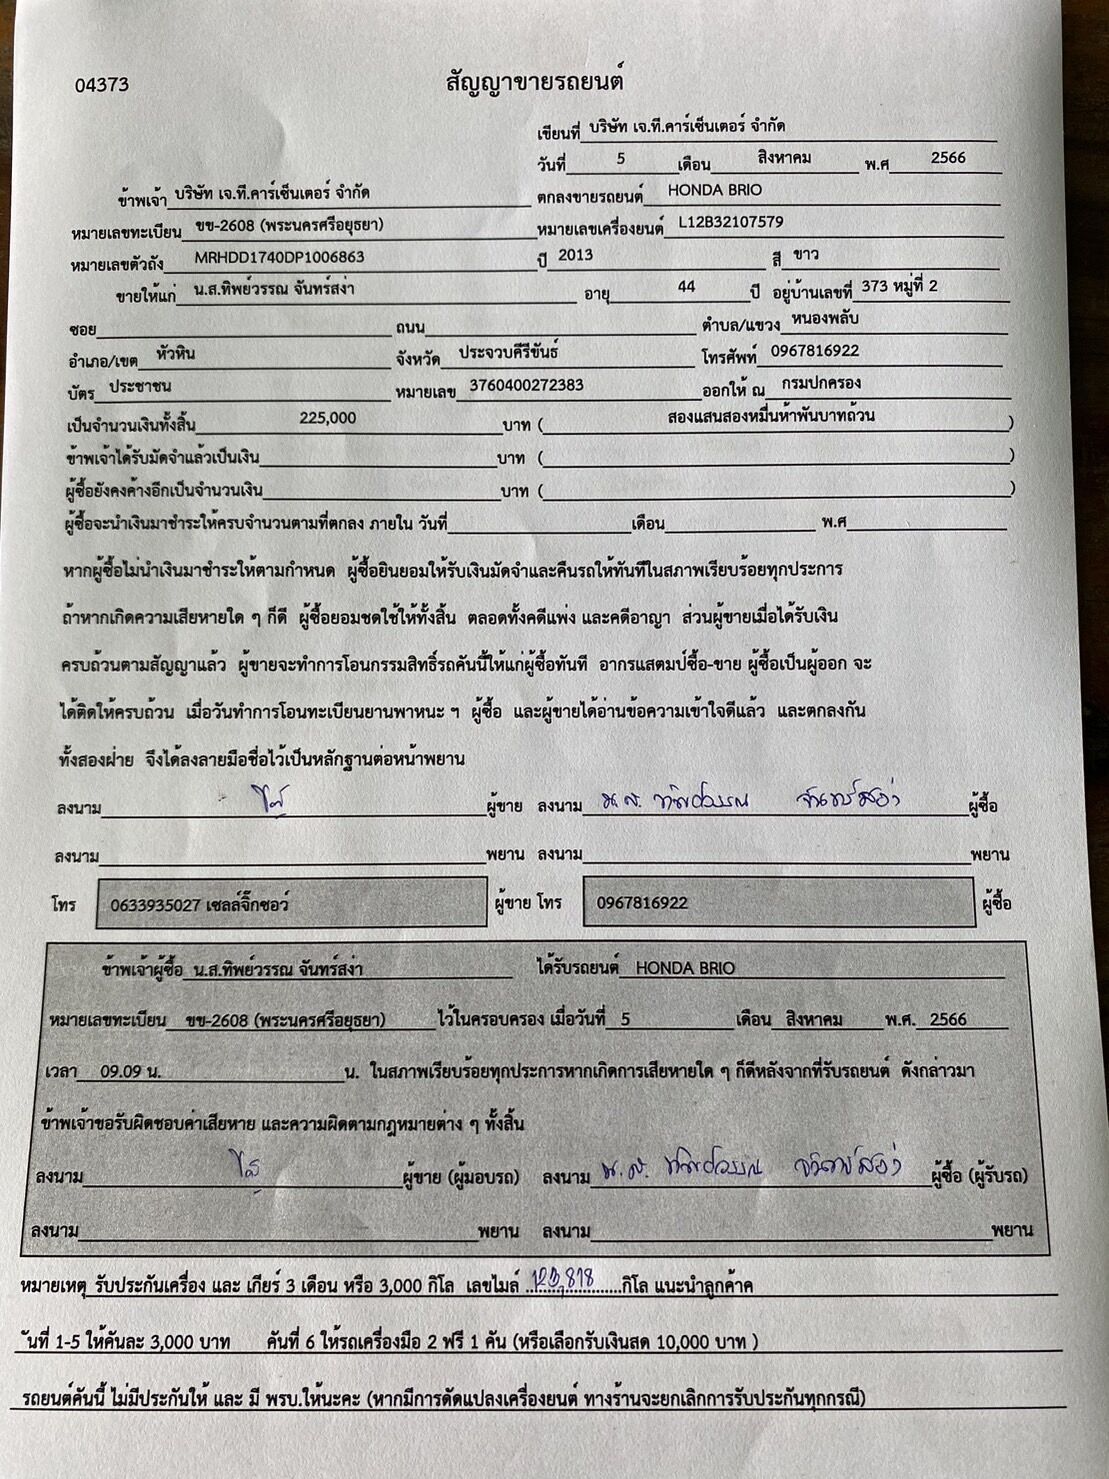 04373
สัญญาขายรถยนต์
เขียนที่ บริษัท เจ.ที.คาร์เซ็นเตอร์ จำกัด
วันที่ 5 เดือน สิงหาคม พ.ศ 2566
ข้าพเจ้า บริษัท เจ.ที.คาร์เซ็นเตอร์ จำกัด ตกลงขายรถยนต์ HONDA BRIO
หมายเลขทะเบียน ขข-2608 (พระนครศรีอยุธยา) หมายเลขเครื่องยนต์ L12B32107579
หมายเลขตัวถัง MRHDD1740DP1006863 ปี 2013 สี ขาว
ขายให้แก่ น.ส.ทิพย์วรรณ จันทร์สง่า อายุ 44 ปี อยู่บ้านเลขที่ 373 หมู่ที่ 2
ซอย ถนน ตำบล/แขวง หนองพลับ
อำเภอ/เขต หัวหิน จังหวัด ประจวบคีรีขันธ์ โทรศัพท์ 0967816922
บัตร ประชาชน หมายเลข 3760400272383 ออกให้ ณ กรมปกครอง
เป็นจำนวนเงินทั้งสิ้น 225,000 บาท ( สองแสนสองหมื่นห้าพันบาทถ้วน )
ข้าพเจ้าได้รับมัดจำแล้วเป็นเงิน บาท ( )
ผู้ซื้อยังคงค้างอีกเป็นจำนวนเงิน บาท ( )
ผู้ซื้อจะนำเงินมาชำระให้ครบจำนวนตามที่ตกลง ภายใน วันที่ เดือน พ.ศ
หากผู้ซื้อไม่นำเงินมาชำระให้ตามกำหนด ผู้ซื้อยินยอมให้รับเงินมัดจำและคืนรถให้ทันทีในสภาพเรียบร้อยทุกประการ
ถ้าหากเกิดความเสียหายใด ๆ ก็ดี ผู้ซื้อยอมชดใช้ให้ทั้งสิ้น ตลอดทั้งคดีแพ่ง และคดีอาญา ส่วนผู้ขายเมื่อได้รับเงิน
ครบถ้วนตามสัญญาแล้ว ผู้ขายจะทำการโอนกรรมสิทธิ์รถคันนี้ให้แก่ผู้ซื้อทันที อากรแสตมป์ซื้อ-ขาย ผู้ซื้อเป็นผู้ออก จะ
ได้ติดให้ครบถ้วน เมื่อวันทำการโอนทะเบียนยานพาหนะ ฯ ผู้ซื้อ และผู้ขายได้อ่านข้อความเข้าใจดีแล้ว และตกลงกัน
ทั้งสองฝ่าย จึงได้ลงลายมือชื่อไว้เป็นหลักฐานต่อหน้าพยาน
ลงนาม ผู้ขาย ลงนาม น.ส. ทิพย์วรรณ จันทร์สง่า ผู้ซื้อ
ลงนาม พยาน ลงนาม พยาน
โทร 0633935027 เซลล์จิ๊กซอว์ ผู้ขาย โทร 0967816922 ผู้ซื้อ
ข้าพเจ้าผู้ซื้อ น.ส.ทิพย์วรรณ จันทร์สง่า ได้รับรถยนต์ HONDA BRIO
หมายเลขทะเบียน ขข-2608 (พระนครศรีอยุธยา) ไว้ในครอบครอง เมื่อวันที่ 5 เดือน สิงหาคม พ.ศ. 2566
เวลา 09.09 น. น. ในสภาพเรียบร้อยทุกประการหากเกิดการเสียหายใด ๆ ก็ดีหลังจากที่รับรถยนต์ ดังกล่าวมา
ข้าพเจ้าขอรับผิดชอบค่าเสียหาย และความผิดตามกฎหมายต่าง ๆ ทั้งสิ้น
ลงนาม ผู้ขาย (ผู้มอบรถ) ลงนาม น.ส. ทิพย์วรรณ จันทร์สง่า ผู้ซื้อ (ผู้รับรถ)
ลงนาม พยาน ลงนาม พยาน
หมายเหตุ รับประกันเครื่อง และ เกียร์ 3 เดือน หรือ 3,000 กิโล เลขไมล์ กิโล แนะนำลูกค้าค
ันที่ 1-5 ให้คันละ 3,000 บาท คันที่ 6 ให้รถเครื่องมือ 2 ฟรี 1 คัน (หรือเลือกรับเงินสด 10,000 บาท )
รถยนต์คันนี้ ไม่มีประกันให้ และ มี พรบ.ให้นะคะ (หากมีการดัดแปลงเครื่องยนต์ ทางร้านจะยกเลิกการรับประกันทุกกรณี)